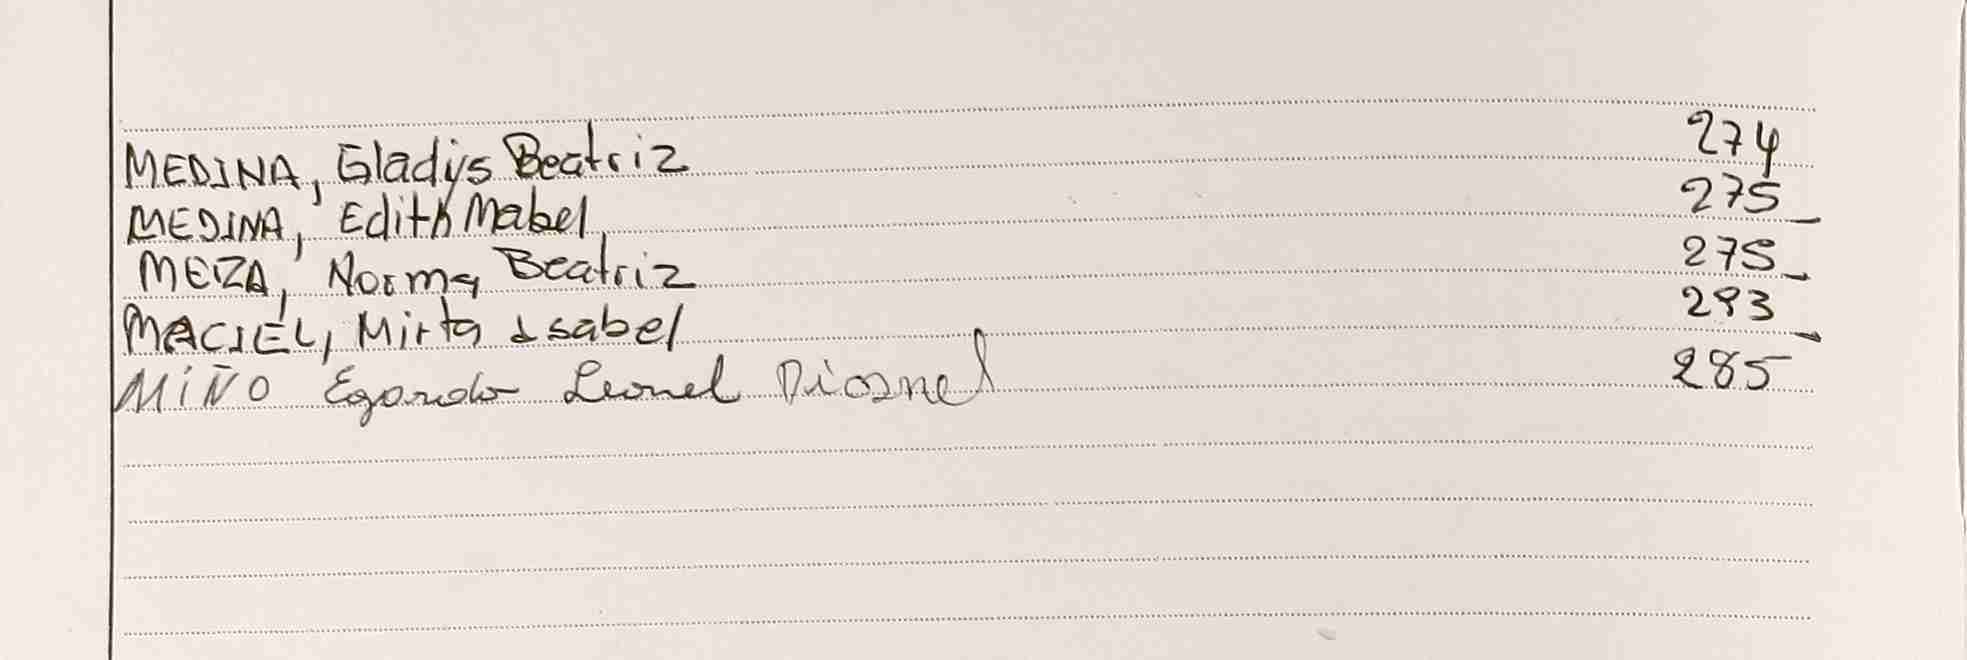 MEDINA, Gladys Beatriz 274
MEDINA, Edith Mabel 275
MEZA, Norma Beatriz 275
MACIEL, Mirta Isabel 293
MIÑO Egardo Leonel Diosnel 285